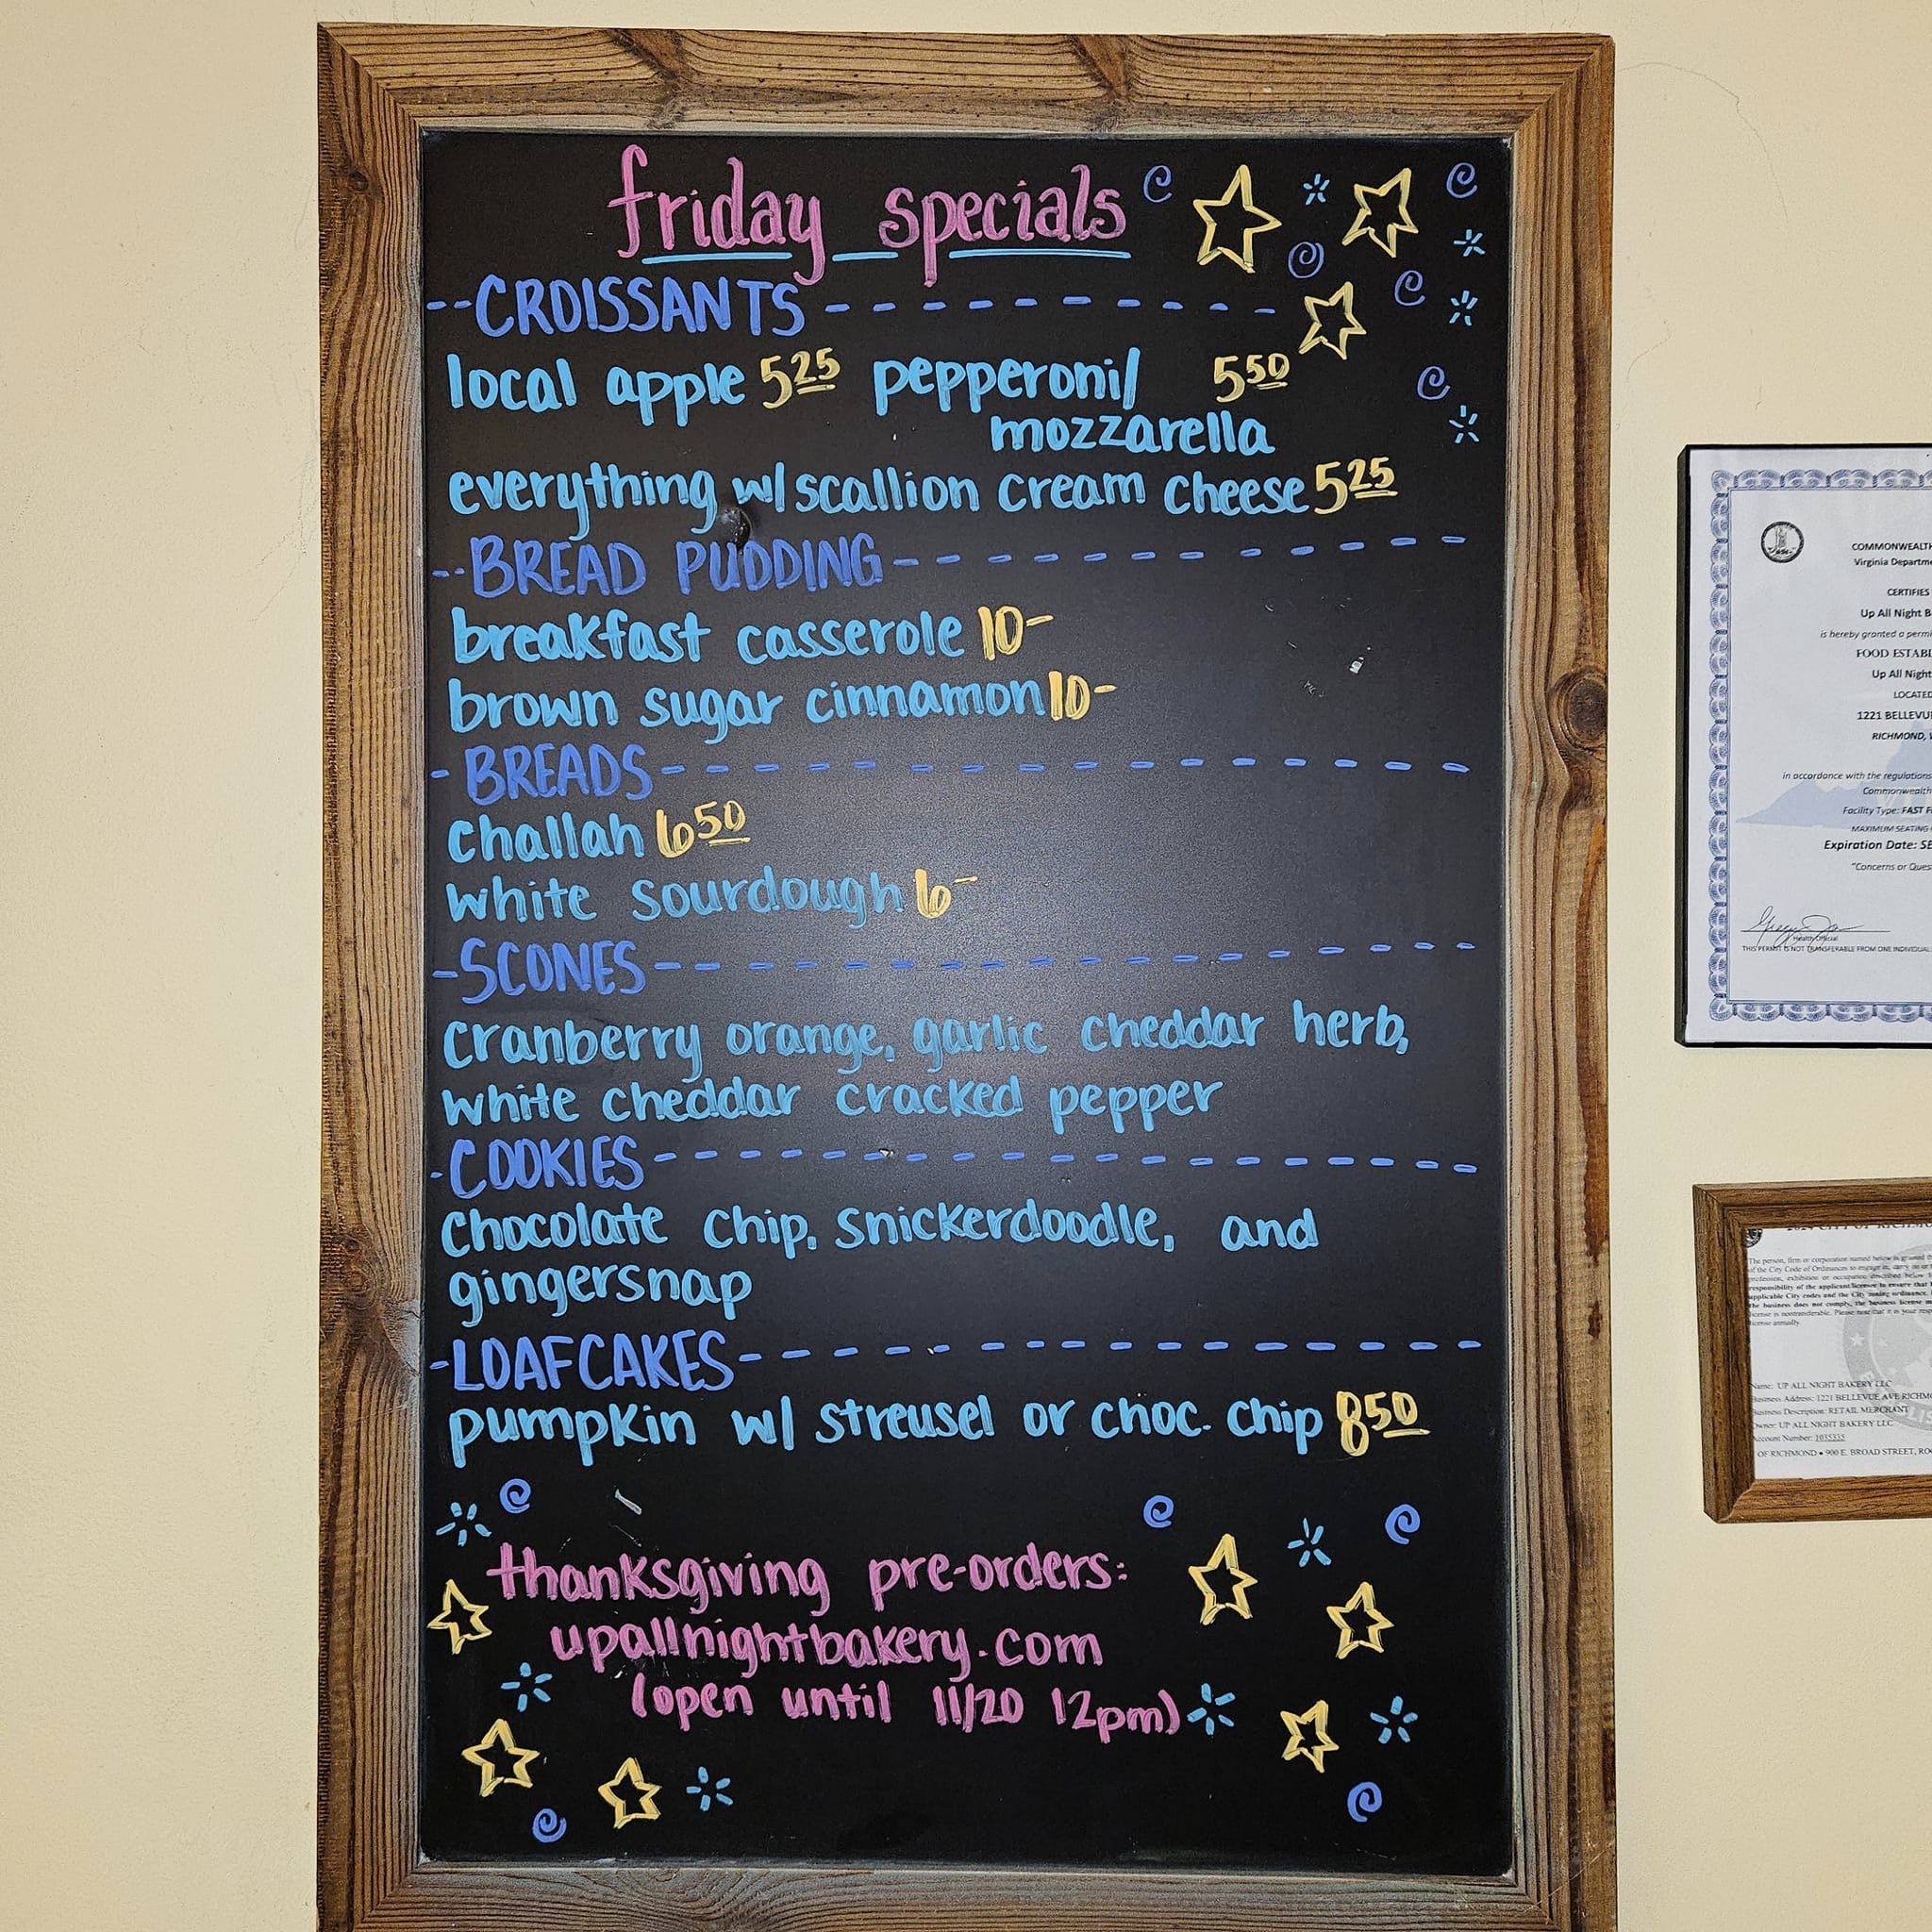 friday specials
--CROISSANTS- - - - - - - - -
local apple 5 25 pepperoni/ 5 50
mozzarella
everything w/ scallion cream cheese 5 25
--BREAD PUDDING- - - - - - - - - -
breakfast casserole 10-
brown sugar cinnamon 10-
- BREADS- - - - - - - - - - - - - - -
challah 6 50
white sourdough 6-
-SCONES- - - - - - - - - - - - - - -
cranberry orange, garlic cheddar herb,
white cheddar cracked pepper
-COOKIES- - - - - - - - - - - - - - -
chocolate chip, snickerdoodle, and
gingersnap
-LOAFCAKES- - - - - - - - - - - - -
pumpkin w/ streusel or choc. chip 8 50
thanksgiving pre-orders:
upallnightbakery.com
(open until 11/20 12pm)
COMMONWEALTH
Virginia Departme
CERTIFIES
Up All Night B
is hereby granted a permi
FOOD ESTABL
Up All Night
LOCATED
1221 BELLEVUE
RICHMOND, V
in accordance with the regulations
Commonwealth
Facility Type: FAST F
MAXIMUM SEATING
Expiration Date: SE
"Concerns or Ques
Health Official
THIS PERMIT IS NOT TRANSFERABLE FROM ONE INDIVIDUAL
The person, firm or corporation named below is granted
of the City Code of Ordinances to engage in, carry on or
profession, exhibition or occupation described below
responsibility of the applicant/licensee to ensure that
applicable City codes and the City zoning ordinance.
the business does not comply, the business license
license is nontransferable. Please note that it is your
license annually.
Name: UP ALL NIGHT BAKERY LLC
Business Address: 1221 BELLEVUE AVE RICHMO
Business Description: RETAIL MERCHANT
Owner: UP ALL NIGHT BAKERY LLC
Account Number: 1035335
OF RICHMOND • 900 E. BROAD STREET, RO